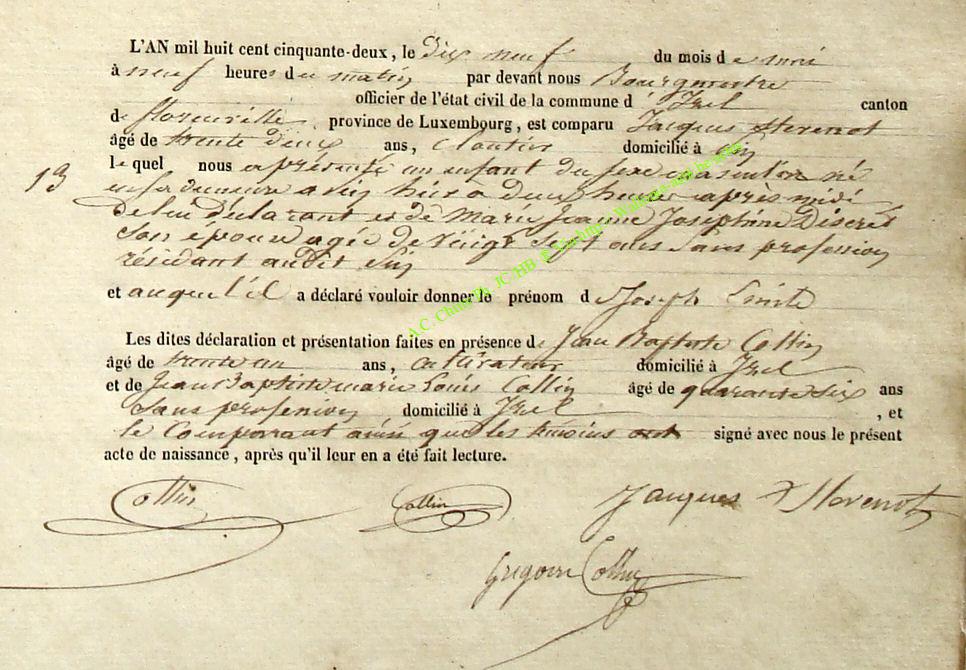 L'AN mil huit cent cinquante-deux, le Dix neuf du mois de mai
à neuf heures du matin par devant nous Bourgmestre
officier de l'état civil de la commune d' Izel canton
de florenville province de Luxembourg, est comparu Jacques
âgé de trente deux ans, cloutier domicilié à
le quel nous a présenté un enfant du sexe masculin né
13
en sa demeure a hier à deux heures après midi
de lui déclarant et de Marie Jeanne Joséphine
son épouse agée de vingt sept ans sans profession
résidant audit
et auquel il a déclaré vouloir donner le prénom de Joseph
Les dites déclaration et présentation faites en présence de Jean Baptiste Collin
âgé de trente un ans, cultivateur domicilié à Izel
et de Jean Baptiste marie Louis Collin âgé de quarante six ans
sans profession domicilié à Izel , et
le Comparant ainsi que les témoins ont signé avec nous le présent
acte de naissance, après qu'il leur en a été fait lecture.
Collin Collin Jacques
Grégoire Collin